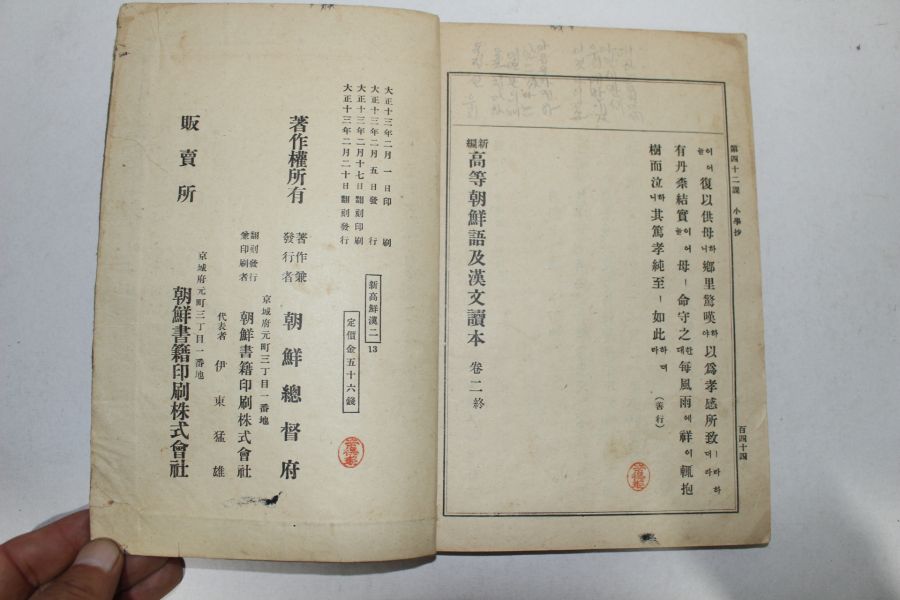 第四十二課 小學抄 百四十四
이어늘 復以供母하니 鄕里驚嘆하야 以爲孝感所致ㅣ라하더라
有丹柰結實이어늘 母ㅣ命守之한대 每風雨에 祥이 輒抱
樹而泣하니 其篤孝純至ㅣ如此하더라 (善行)
新編高等朝鮮語及漢文讀本 卷二終
大正十三年二月一日印刷
大正十三年二月五日發行
大正十三年二月十七日翻刻印刷
大正十三年二月二十日翻刻發行
新高鮮漢二
13
定價金五十六錢
著作權所有
著作兼發行者 朝鮮總督府
京城府元町三丁目一番地
翻刻發行兼印刷者 朝鮮書籍印刷株式會社
代表者 伊東猛雄
京城府元町三丁目一番地
販賣所 朝鮮書籍印刷株式會社